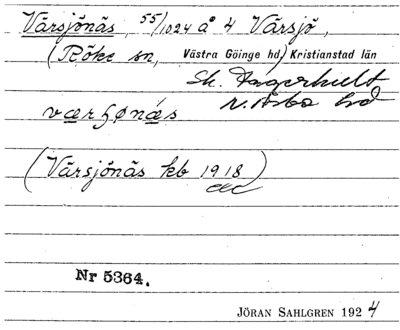 Värsjönäs, 55/1024 å 4 Värsjö,
(Röke sn, Västra Göinge hd) Kristianstad län
Sk. Fagerhult
N. Åsbo hd
værʂønæs
(Värsjönäs kb 1918)
Nr 5364.
JÖRAN SAHLGREN 1924